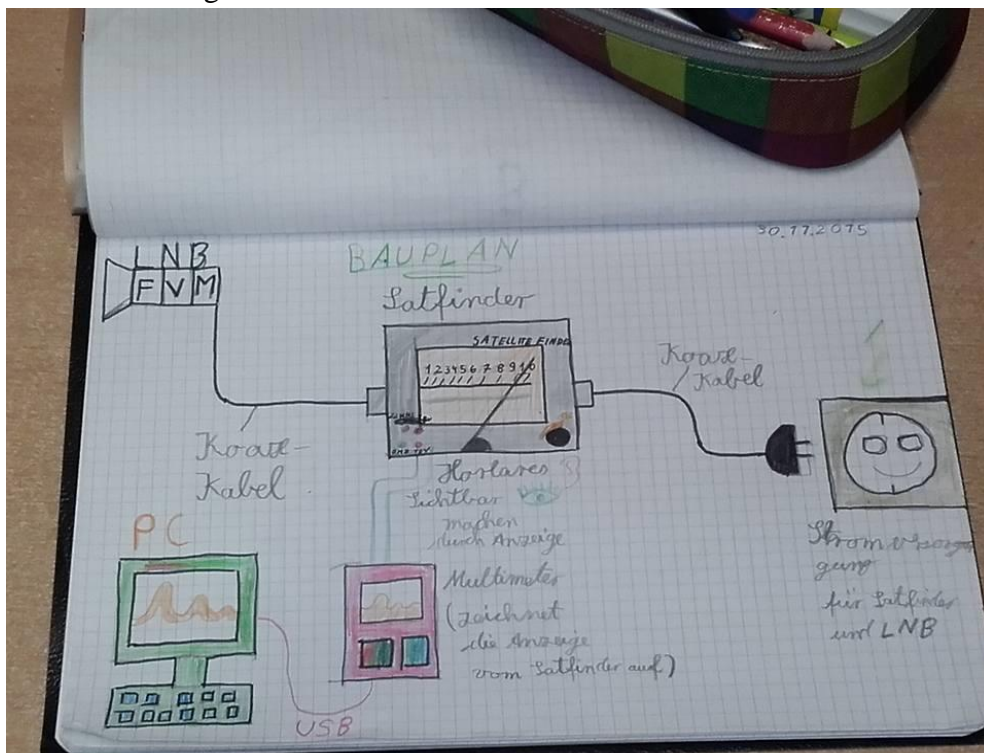 30.11.2015
BAUPLAN
LNB
F V M
Satfinder
SATELLITE FINDE
1 2 3 4 5 6 7 8 9 10
Koax-
Kabel
Koax-
Kabel
Sichtbar
machen
durch Anzeige
PC
Multimeter
(zeichnet
die Anzeige
vom Satfinder auf)
USB
für Satfinder
und LNB